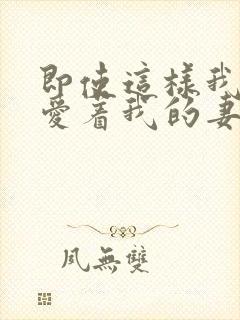 即使這樣我
愛著我的妻
風無雙